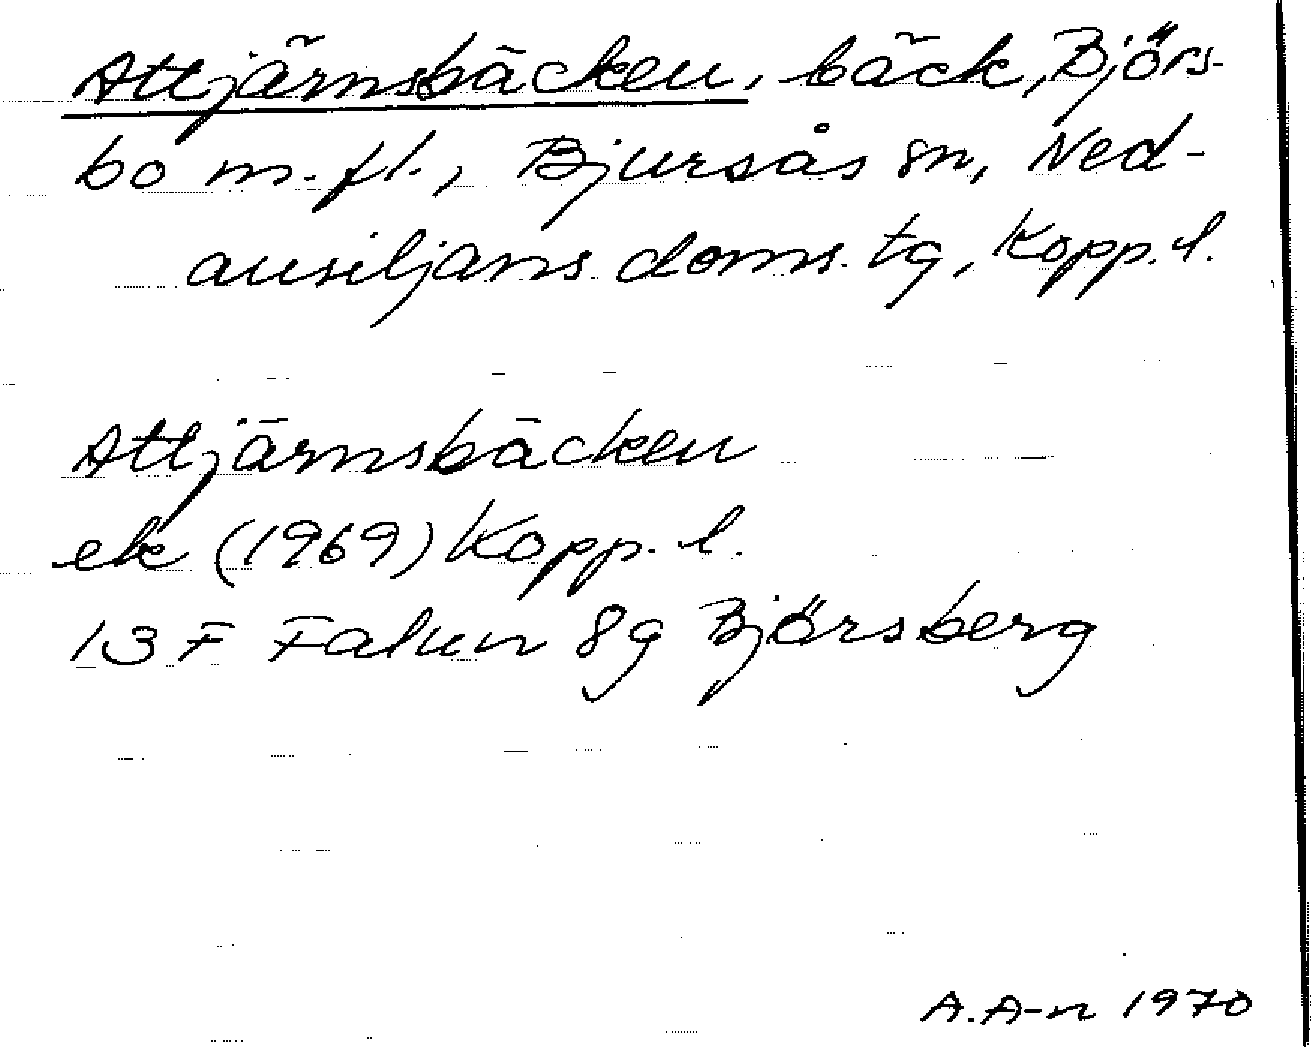 Attjärnsbäcken, bäck, Björs-
bo m.fl., Bjursås sn, Ned-
ansiljans doms. tg, Kopp. l.
Attjärnsbäcken
ek (1969) Kopp. l.
13 F Falun 8g Björsberg
A. A-n 1970